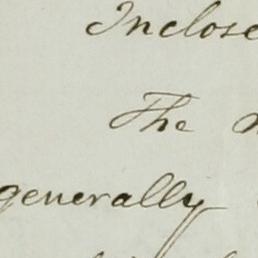 Inclose
The
generally